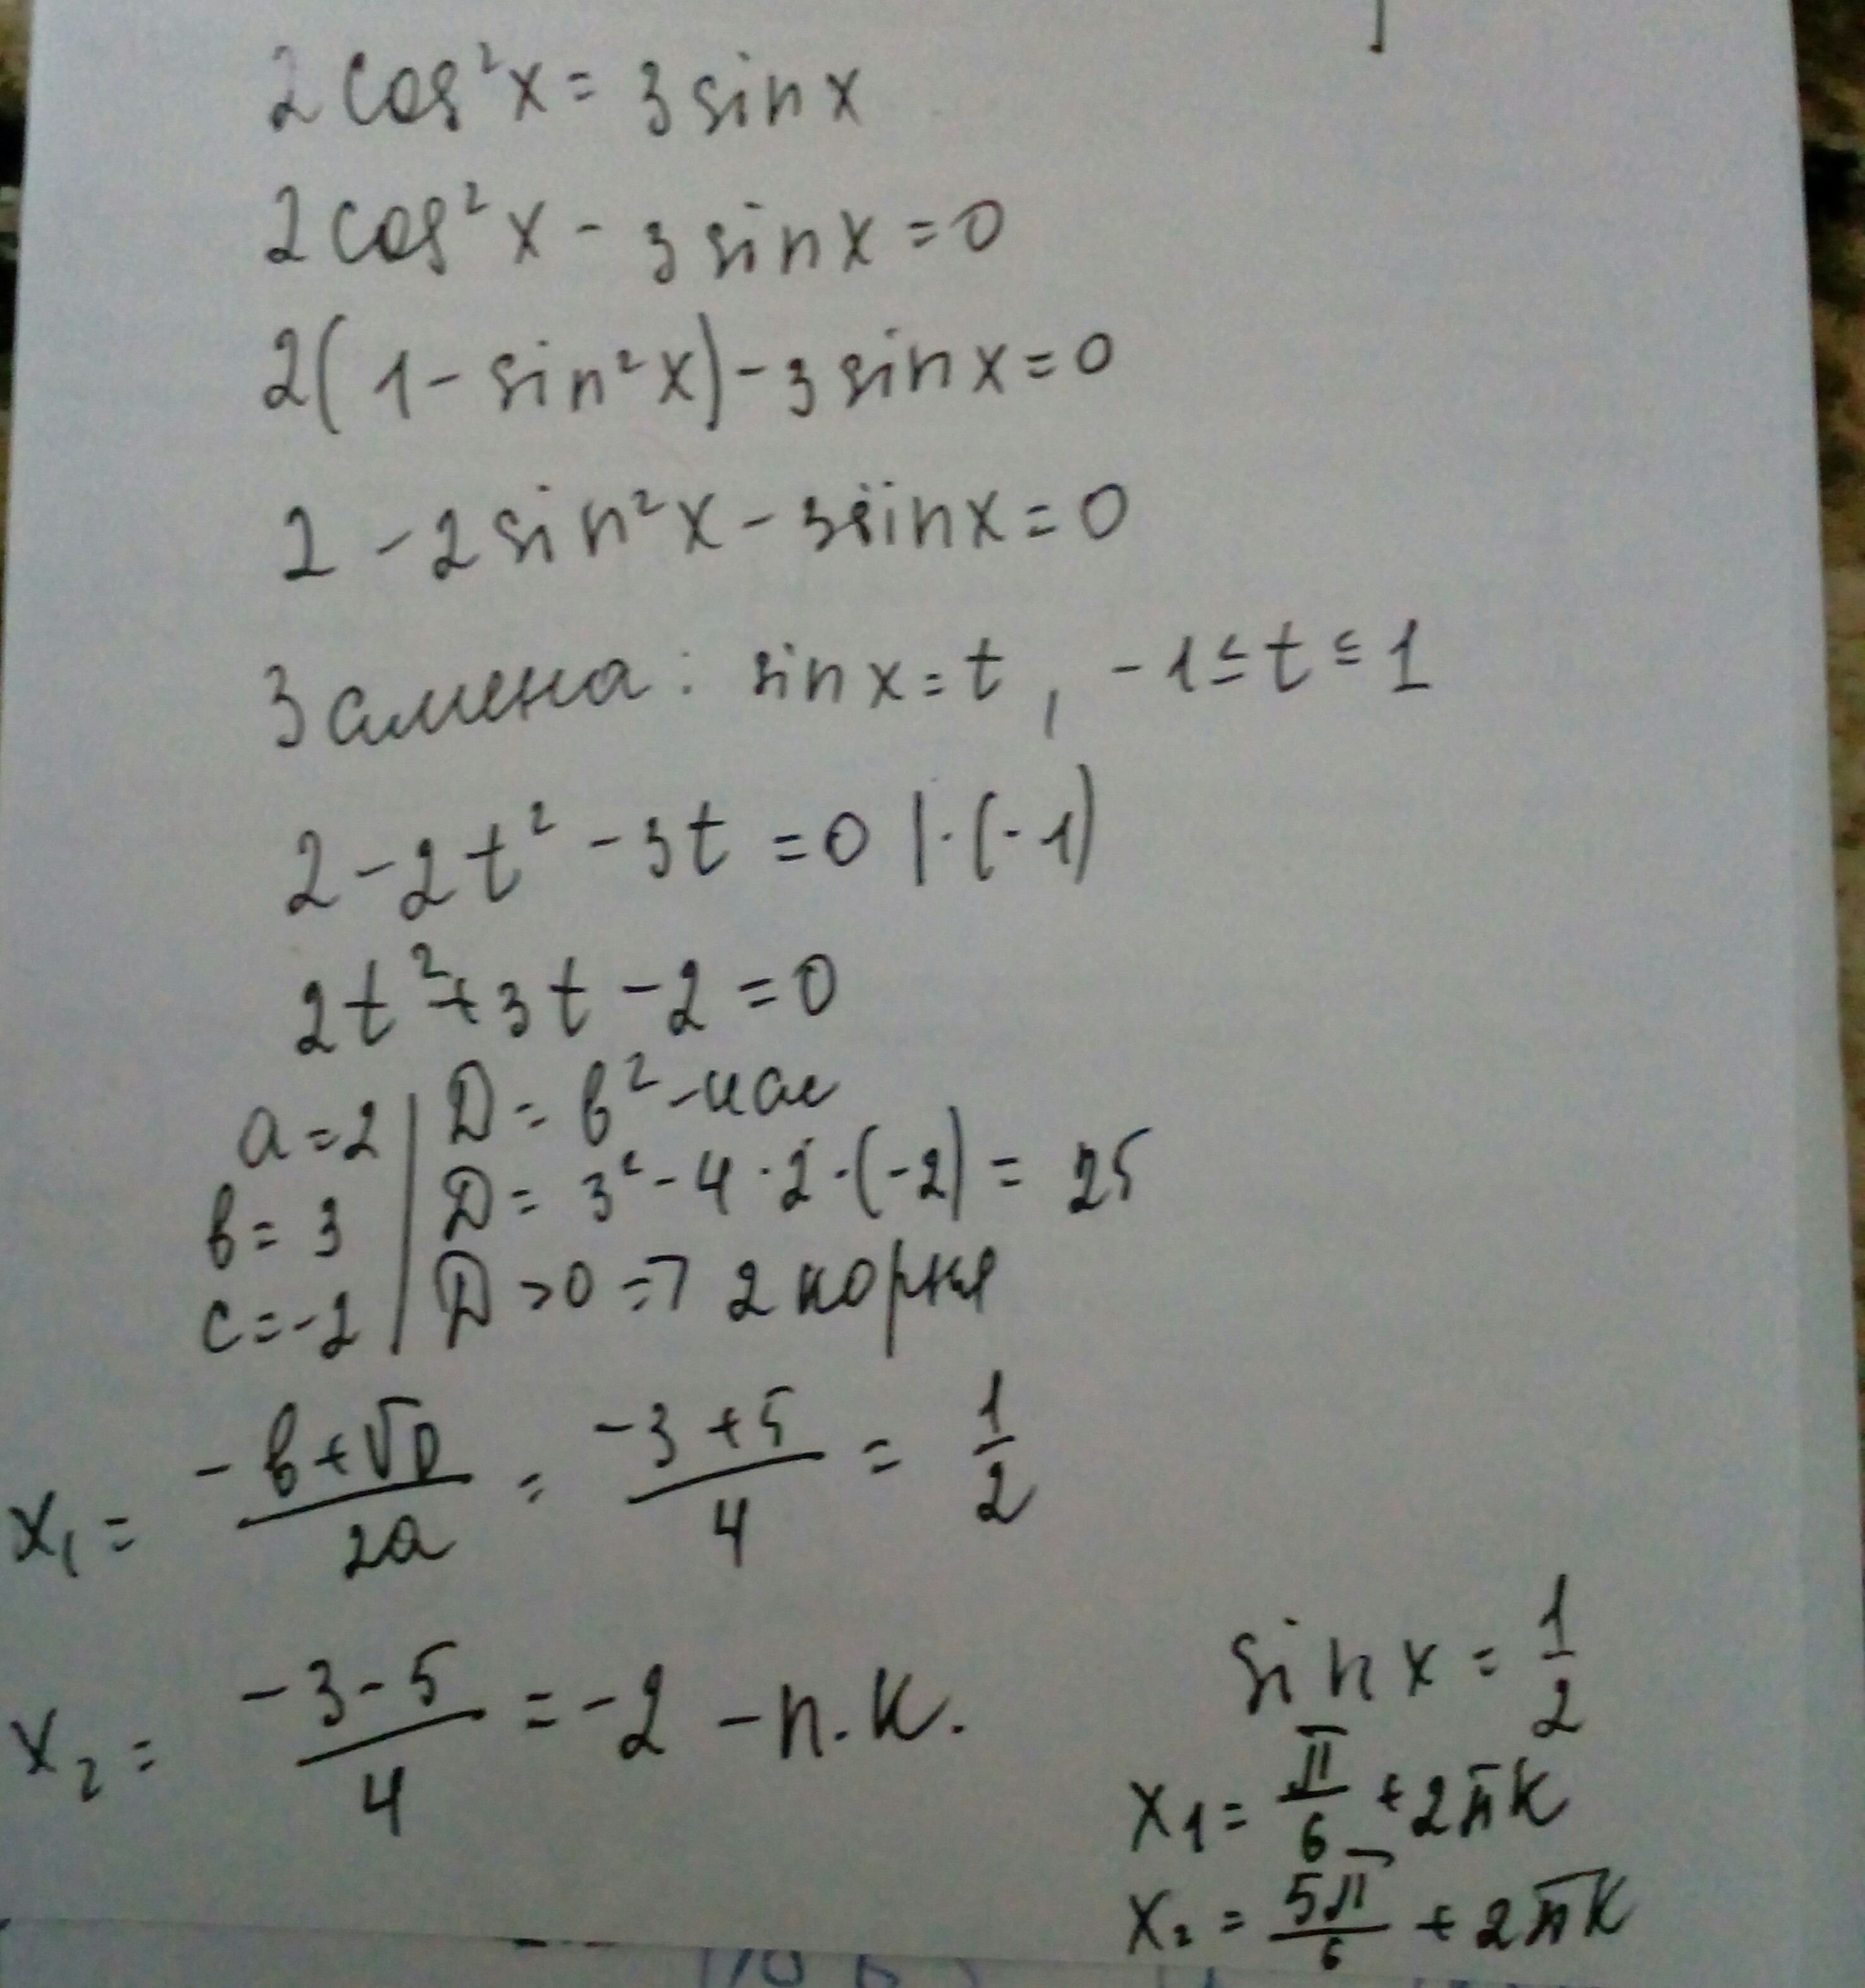 2cos²x = 3sinx
2cos²x - 3sinx = 0
2(1 - sin²x) - 3sinx = 0
2 - 2sin²x - 3sinx = 0
Замена: sinx = t, -1 ≤ t ≤ 1
2 - 2t² - 3t = 0 | · (-1)
2t² + 3t - 2 = 0
a = 2 | D = b² - 4ac
b = 3 | D = 3² - 4 · 2 · (-2) = 25
c = -2 | D > 0 => 2 корня
x₁ = (-b + √D)/(2a) = (-3 + 5)/4 = 1/2
x₂ = (-3 - 5)/4 = -2 - п.к.
sinx = 1/2
x₁ = π/6 + 2πk
x₂ = 5π/6 + 2πk